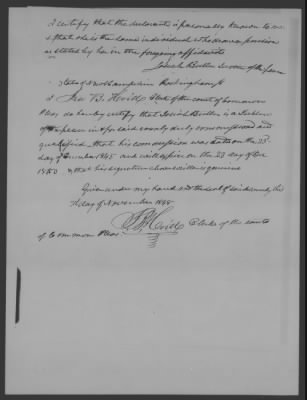 I certify that the declarant is personally known to me
& that she is the same individual who draws pension
as stated by her in the foregoing affidavit
Josiah Butler
State of New Hampshire Rockingham ss
I Clerk of the court of Common
Pleas do hereby certify that Josiah Butler is a Justice
of the peace in aforesaid county duly commissioned and
qualified, that his commission was dated on the 23d
day of 1845 and will expire on the 23 day of
1850 & that his signature above written is genuine
Given under my hand and the seal of said county this
day of November 1848
Clerk of the courts
of Common Pleas